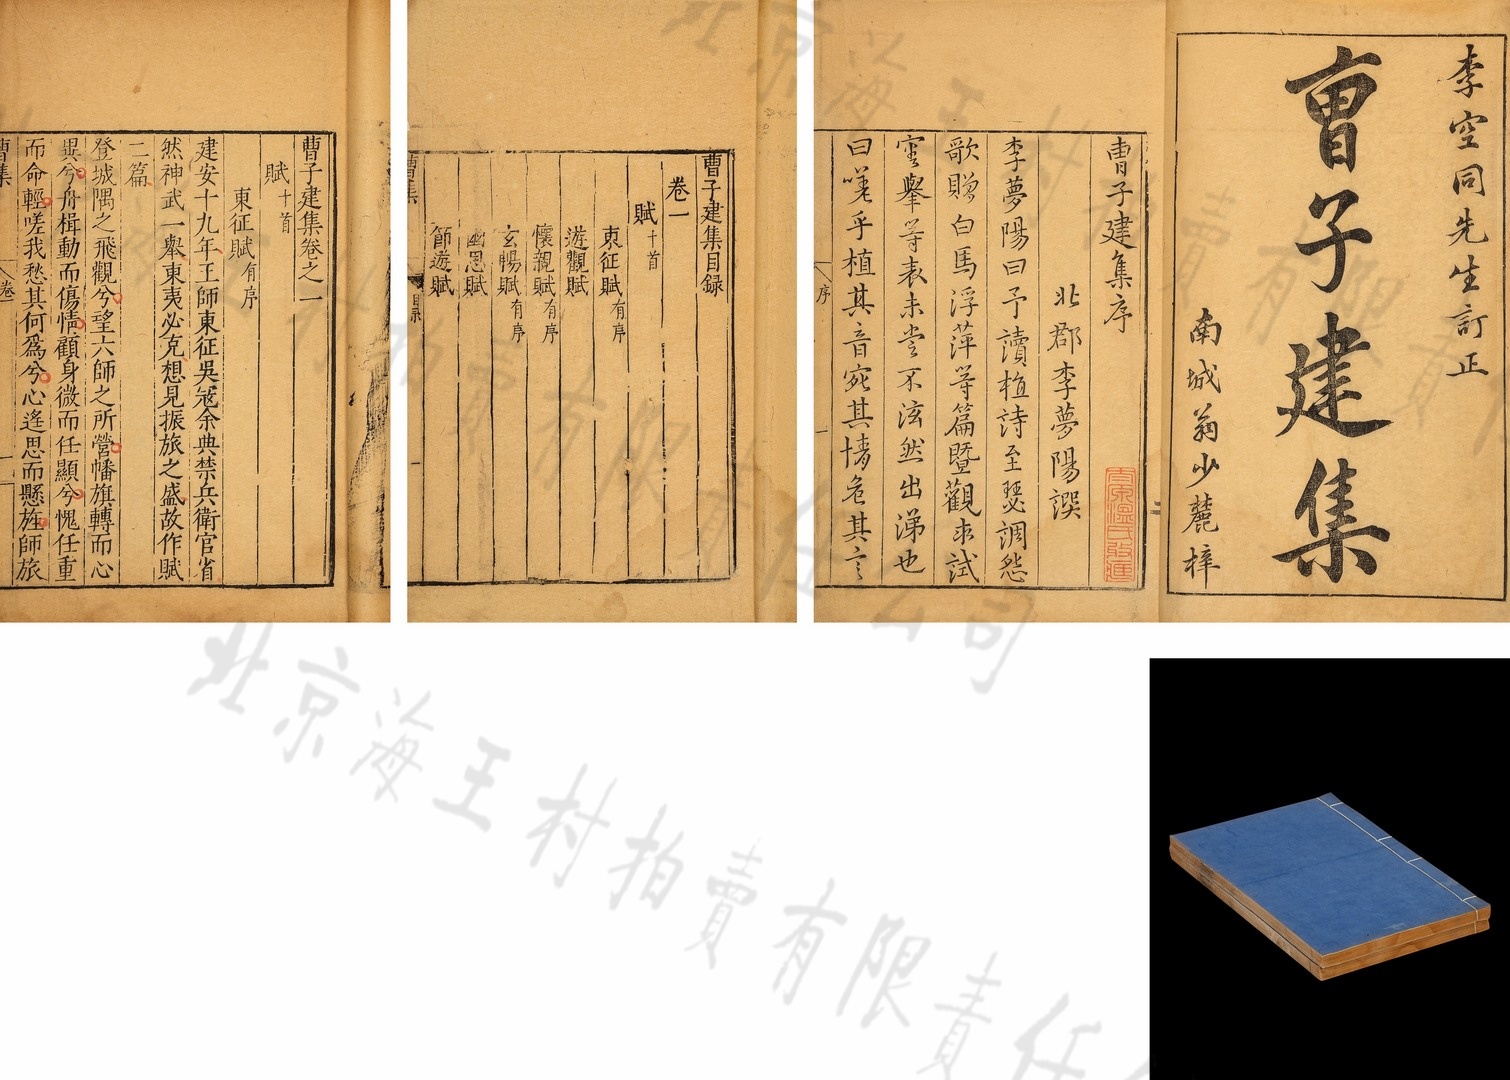 李空同先生訂正
曺子建集
南城翁少麓梓
曺子建集序
北郡李夢陽譔
李夢陽曰予讀植詩至瑟調怨
歌贈白馬浮萍等篇暨觀求試
審舉等表未嘗不泫然出涕也
曰嗟乎植其音宛其情危其言
序
一
曹子建集目録
卷一
賦十首
東征賦有序
遊觀賦
懷親賦有序
玄暢賦有序
幽思賦
節遊賦
一
曹子建集卷之一
賦十首
東征賦有序
建安十九年王師東征吳寇余典禁兵衛官省
然神武一舉東夷必克想見振旅之盛故作賦
二篇
登城隅之飛觀兮望六師之所營幡旗轉而心
異兮舟楫動而傷情顧身微而任顯兮愧任重
而命輕嗟我愁其何爲兮心遙思而懸旌師旅
曹集
卷一
北京海王村拍賣有限責任公司
北京海王村拍賣有限責任